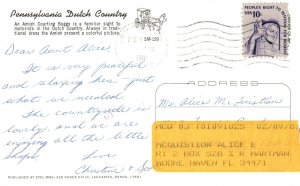 Pennsylvania Dutch Country
An Amish Courting Buggy is a familiar sight to
motorists in the Dutch Country. Always in tradi-
tional dress the Amish present a colorful picture.
SM-129
PEOPLE'S RIGHT TO
USA 10c
Dear Aunt Alice,
It is very peaceful
and relaxing here - just
what we needed.
The countryside is
lovely, and we are
enjoying all the little
shops.
Love
Christine &
ADDRESS
Ms. Alice M.
MCQ 03 02/09/8
ACQUISITION ALICE E
RT 2 BOX 528 % R HARTMAN
MOORE HAVEN FL 33471